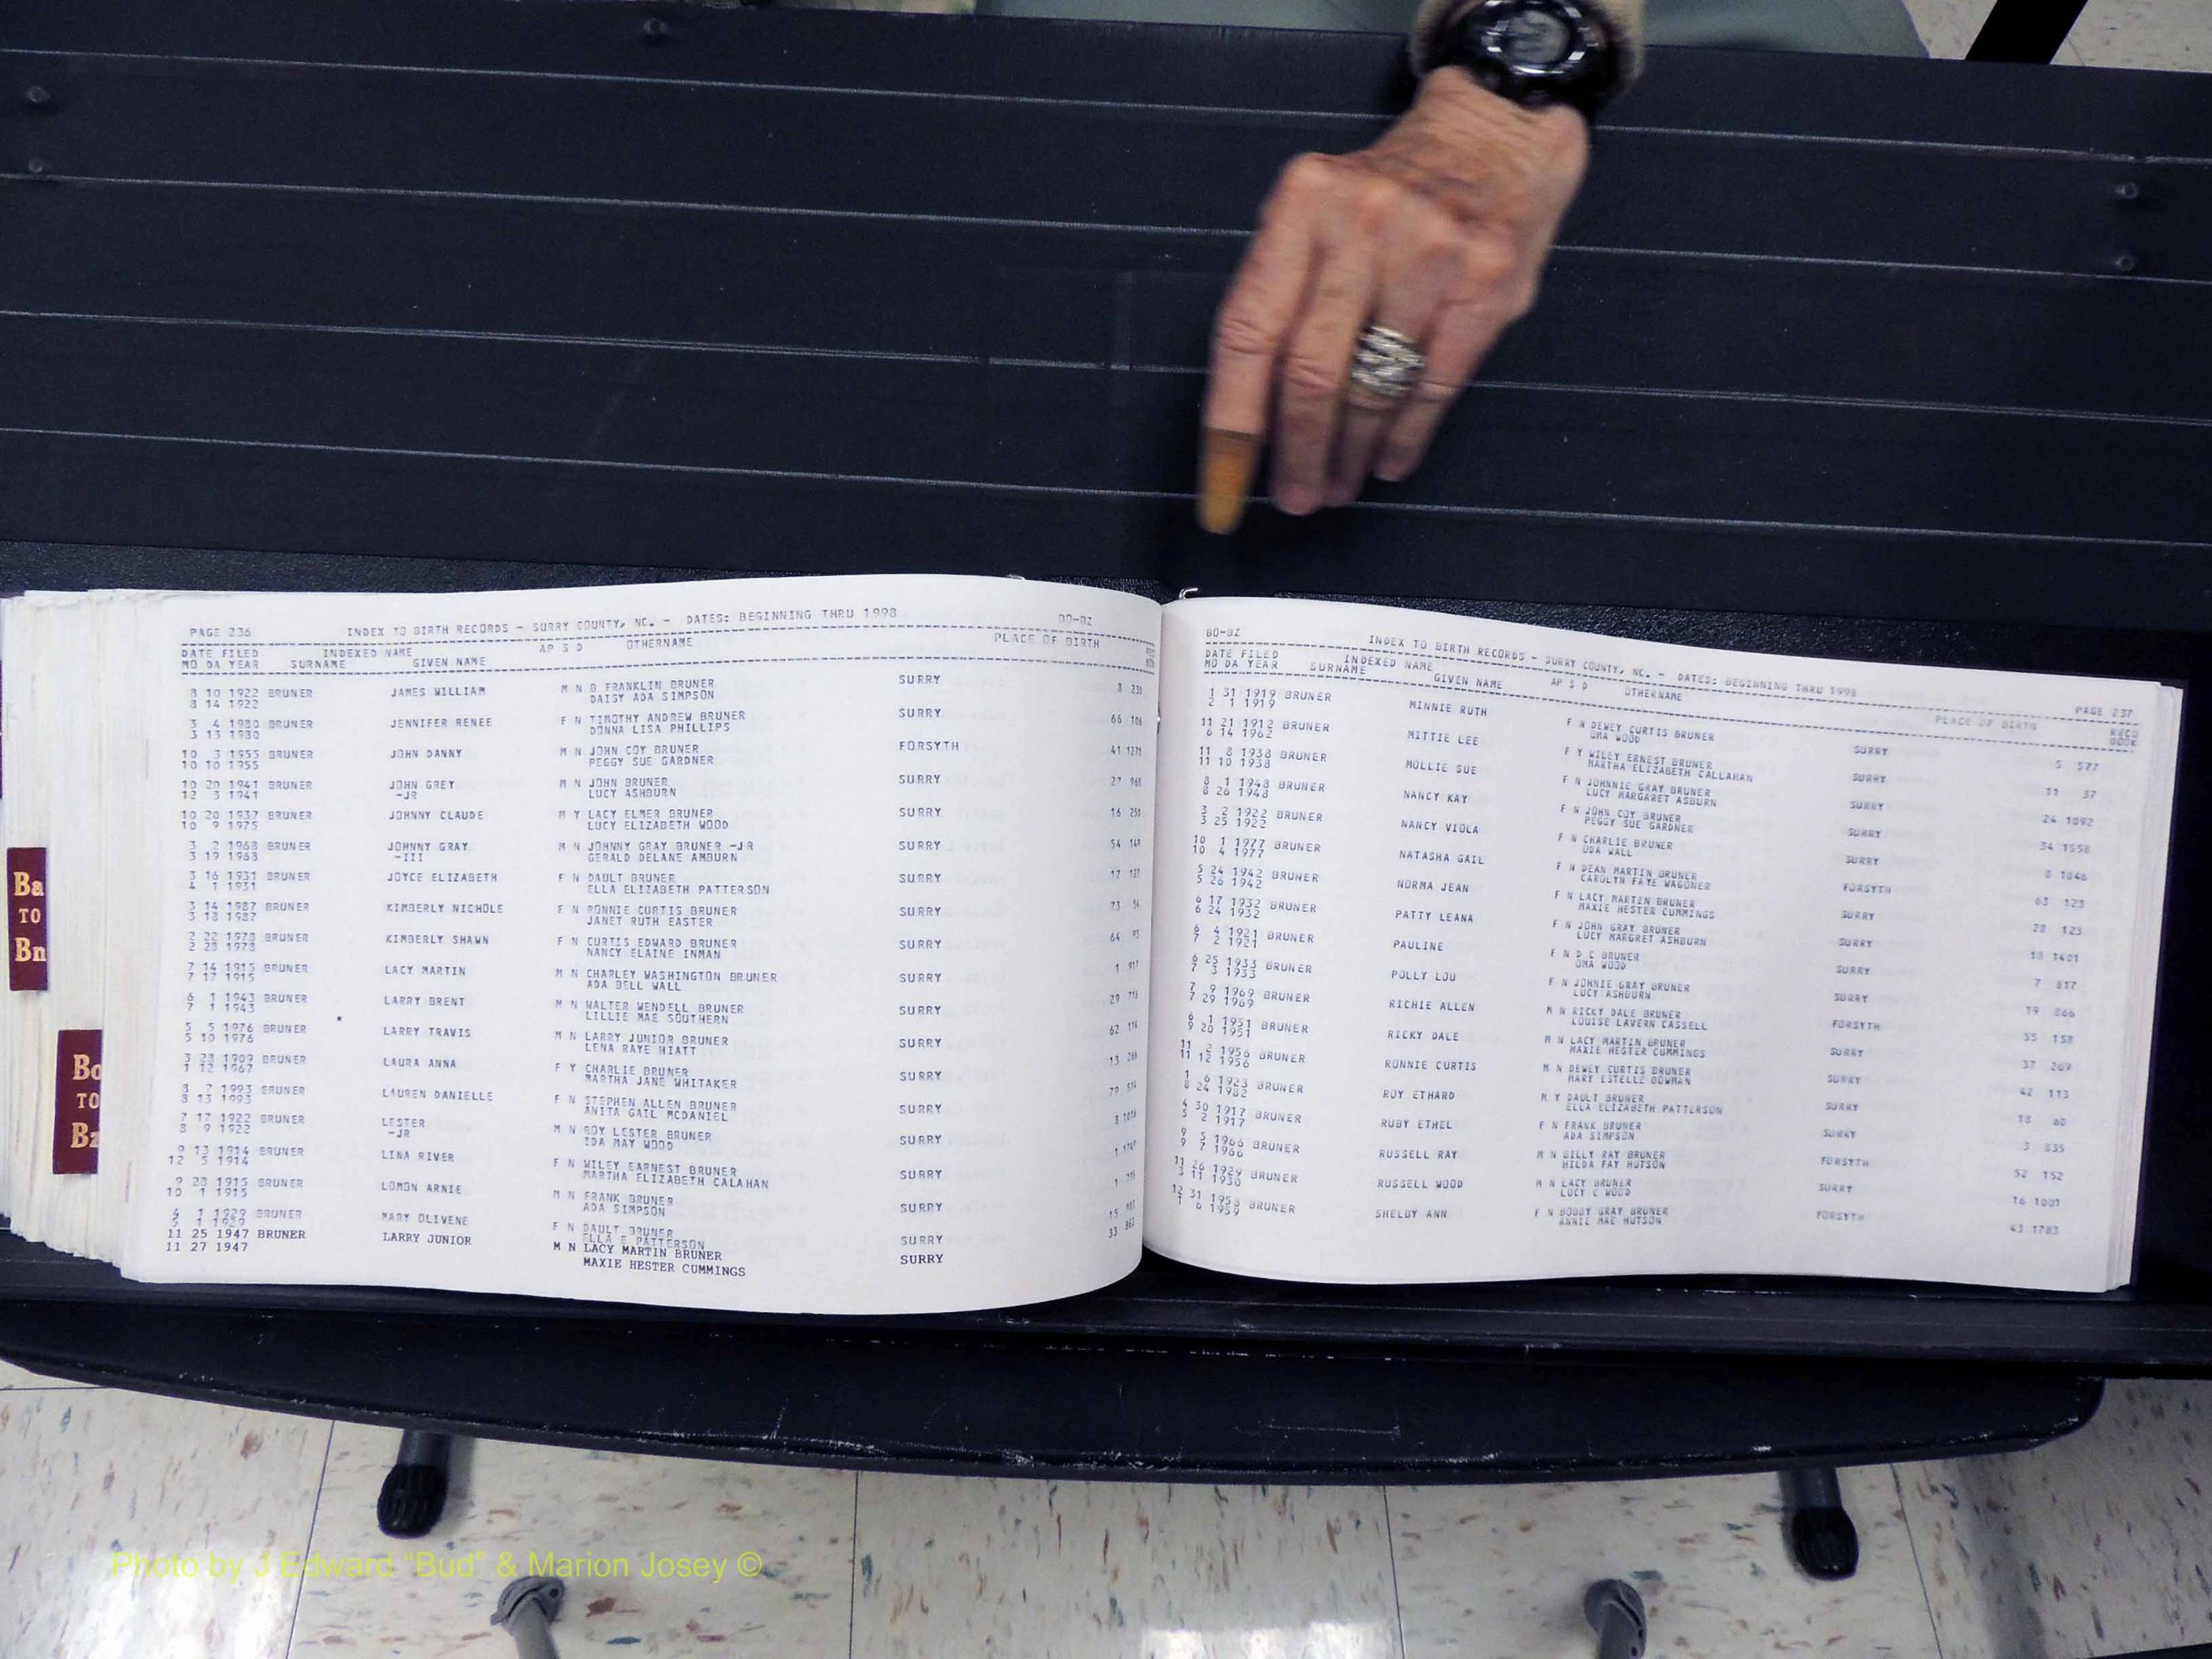 Ba
TO
Bn
Bo
TO
Bz
PAGE 236 INDEX TO BIRTH RECORDS - SURRY COUNTY, NC. - DATES: BEGINNING THRU 1998 BO-BZ
DATE FILED INDEXED NAME AP S D OTHERNAME PLACE OF BIRTH
MO DA YEAR SURNAME GIVEN NAME
8 10 1922 BRUNER JAMES WILLIAM M N B FRANKLIN BRUNER SURRY 8 230
8 14 1922 DAISY ADA SIMPSON
3 4 1980 BRUNER JENNIFER RENEE F N TIMOTHY ANDREW BRUNER SURRY 66 106
3 13 1980 DONNA LISA PHILLIPS
10 3 1955 BRUNER JOHN DANNY M N JOHN COY BRUNER FORSYTH 41 1271
10 10 1955 PEGGY SUE GARDNER
10 20 1941 BRUNER JOHN GREY M N JOHN BRUNER SURRY 27 961
12 3 1941 -JR LUCY ASHBURN
10 20 1937 BRUNER JOHNNY CLAUDE M Y LACY ELMER BRUNER SURRY 16 250
10 9 1975 LUCY ELIZABETH WOOD
3 2 1968 BRUNER JOHNNY GRAY M N JOHNNY GRAY BRUNER -JR SURRY 54 149
3 19 1968 -III GERALD DELANE AMBURN
3 16 1931 BRUNER JOYCE ELIZABETH F N DAULT BRUNER SURRY 17 127
4 1 1931 ELLA ELIZABETH PATTERSON
3 14 1987 BRUNER KIMBERLY NICHOLE F N RONNIE CURTIS BRUNER SURRY 73 54
3 18 1987 JANET RUTH EASTER
2 22 1978 BRUNER KIMBERLY SHAWN F N CURTIS EDWARD BRUNER SURRY 64 93
2 28 1978 NANCY ELAINE INMAN
7 14 1915 BRUNER LACY MARTIN M N CHARLEY WASHINGTON BRUNER SURRY 1 917
7 17 1915 ADA BELL WALL
6 1 1943 BRUNER LARRY BRENT M N WALTER WENDELL BRUNER SURRY 29
7 1 1943 LILLIE MAE SOUTHERN
5 5 1976 BRUNER LARRY TRAVIS M N LARRY JUNIOR BRUNER SURRY 62 114
5 10 1976 LENA RAYE HIATT
3 28 1909 BRUNER LAURA ANNA F Y CHARLIE BRUNER SURRY 13
1 12 1967 MARTHA JANE WHITAKER
8 7 1993 BRUNER LAUREN DANIELLE F N STEPHEN ALLEN BRUNER SURRY 79
8 13 1993 ANITA GAIL MCDANIEL
7 17 1922 BRUNER LESTER M N ROY LESTER BRUNER SURRY 8
8 9 1922 -JR IDA MAY WOOD
9 13 1914 BRUNER LINA RIVER F N WILEY EARNEST BRUNER SURRY 1
12 5 1914 MARTHA ELIZABETH CALAHAN
9 28 1915 BRUNER LOMON ARNIE M N FRANK BRUNER SURRY 1
10 1 1915 ADA SIMPSON
4 1 1929 BRUNER MARY OLIVENE F N DAULT BRUNER SURRY 15
5 1 1929 ELLA E PATTERSON
11 25 1947 BRUNER LARRY JUNIOR M N LACY MARTIN BRUNER SURRY 33
11 27 1947 MAXIE HESTER CUMMINGS
BO-BZ INDEX TO BIRTH RECORDS - SURRY COUNTY, NC. - DATES: BEGINNING THRU 1998 PAGE 237
DATE FILED INDEXED NAME AP S D OTHERNAME PLACE OF BIRTH RECO
MO DA YEAR SURNAME GIVEN NAME BOOK
1 31 1919 BRUNER MINNIE RUTH F N DEWEY CURTIS BRUNER SURRY 5 577
2 1 1919 OMA WOOD
11 21 1912 BRUNER MITTIE LEE F Y WILEY ERNEST BRUNER SURRY 11 37
6 14 1962 MARTHA ELIZABETH CALLAHAN
11 8 1938 BRUNER MOLLIE SUE F N JOHNNIE GRAY BRUNER SURRY 24 1092
11 10 1938 LUCY MARGARET ASBURN
8 1 1948 BRUNER NANCY KAY F N JOHN COY BRUNER SURRY 34 1558
8 26 1948 PEGGY SUE GARDNER
3 2 1922 BRUNER NANCY VIOLA F N CHARLIE BRUNER SURRY 8 1046
3 25 1922 ODA WALL
10 1 1977 BRUNER NATASHA GAIL F N DEAN MARTIN BRUNER FORSYTH 63 123
10 4 1977 CAROLYN FAYE WAGONER
5 24 1942 BRUNER NORMA JEAN F N LACY MARTIN BRUNER SURRY 28 123
5 26 1942 MAXIE HESTER CUMMINGS
6 17 1932 BRUNER PATTY LEANA F N JOHN GRAY BRUNER SURRY 18 1401
6 24 1932 LUCY MARGRET ASHBURN
6 4 1921 BRUNER PAULINE F N D C BRUNER SURRY 7 817
7 2 1921 OMA WOOD
6 25 1933 BRUNER POLLY LOU F N JOHNIE GRAY BRUNER SURRY 19 866
7 3 1933 LUCY ASHBURN
7 9 1969 BRUNER RICHIE ALLEN M N RICKY DALE BRUNER FORSYTH 55 158
7 29 1969 LOUISE LAVERN CASSELL
6 1 1951 BRUNER RICKY DALE M N LACY MARTIN BRUNER SURRY 37 269
9 20 1951 MAXIE HESTER CUMMINGS
11 2 1956 BRUNER RONNIE CURTIS M N DEWEY CURTIS BRUNER SURRY 42 113
11 12 1956 MARY ESTELLE BOWMAN
1 6 1923 BRUNER ROY ETHARD M Y DAULT BRUNER SURRY 18 60
8 24 1982 ELLA ELIZABETH PATTERSON
4 30 1917 BRUNER RUBY ETHEL F N FRANK BRUNER SURRY 3 835
5 2 1917 ADA SIMPSON
9 5 1966 BRUNER RUSSELL RAY M N BILLY RAY BRUNER FORSYTH 52 152
9 7 1966 HILDA FAY HUTSON
11 26 1929 BRUNER RUSSELL WOOD M N LACY BRUNER SURRY 16 1001
3 11 1930 LUCY E WOOD
12 31 1958 BRUNER SHELBY ANN F N BOBBY GRAY BRUNER FORSYTH 43 1783
1 6 1959 ANNIE MAE HUTSON
Photo by J Edward "Bud" & Marion Josey ©